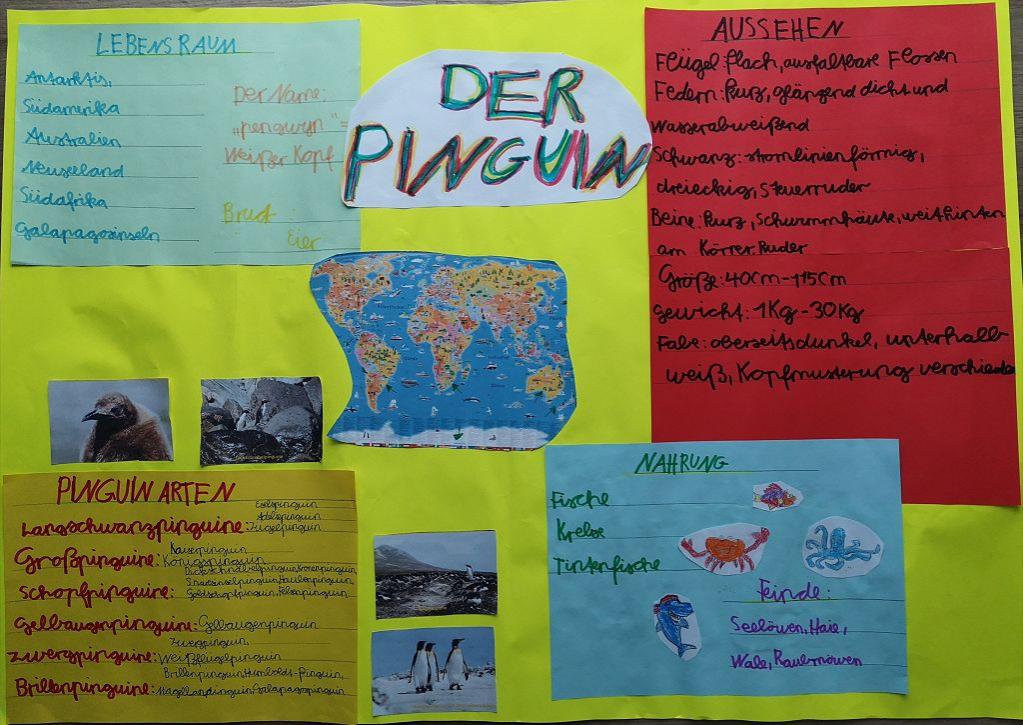 LEBENSRAUM
Antarktis,
Südamerika
Australien
Neuseeland
Südafrika
Galapagosinseln
Der Name:
„pengwyn"=
Weißer Kopf
Brut:
Eier
DER
PINGUIN
AUSSEHEN
Flügel: flach, ausfaltbare Flossen
Federn: kurz, glänzend dicht und
wasserabweißend
Schwanz: stomlinienförmig,
dreieckig, Steuerruder
Beine: kurz, Schwimmhäute, weit hinten
am Körrer, Ruder
Größe: 40cm-115cm
gewicht: 1Kg-30Kg
Fabe: oberseits dunkel, unterhalb
weiß, Kopfmusterung verschieden
PINGUINARTEN
Eselspinguin
Adeliepinguin
Langschwanzpinguine: Zügelpinguin
Kaiserpinguin
Großpinguine: Königspinguin
Dickschnabelpinguin, Kronenpinguin
Snaresinselpinguin, Haubenpinguin,
Schopfpinguine: Goldschopfpinguin, Felsenpinguin
Gelbaugenpinguine: Gelbaugenpinguin
Zwergpinguin,
Zwergpinguine: Weißflügelpinguin
Brillenpinguin, Humboldt-Pinguin,
Brillenpinguine: Magellanpinguin, Galapagospinguin
NAHRUNG
Fische
Krebse
Tintenfische
Feinde:
Seelöwen, Haie,
Wale, Raubmöwen